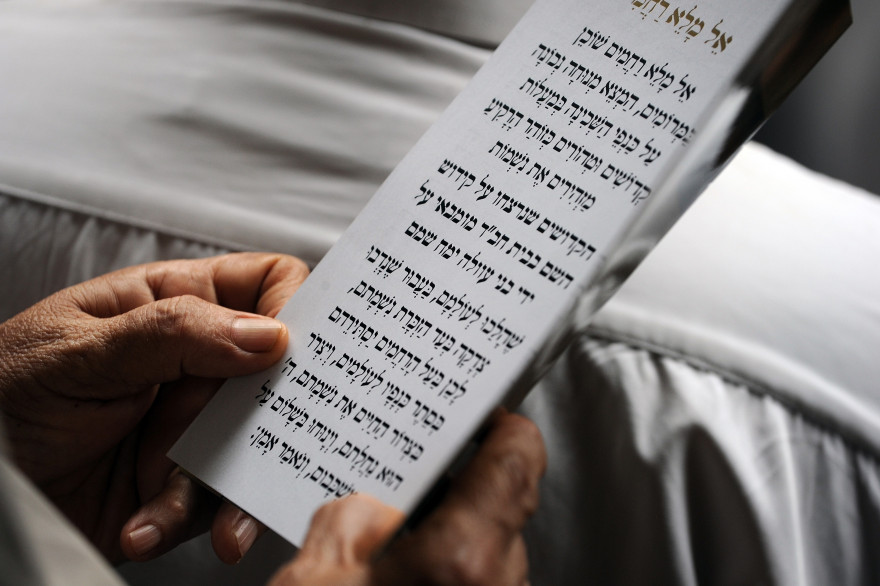 אֵל מָלֵא רַחֲמִים
אֵל מָלֵא רַחֲמִים שׁוֹכֵן
בַּמְּרוֹמִים, הַמְצֵא מְנוּחָה נְכוֹנָה
עַל כַּנְפֵי הַשְּׁכִינָה בְּמַעֲלוֹת
קְדוֹשִׁים וּטְהוֹרִים כְּזוֹהַר הָרָקִיעַ
מַזְהִירִים אֶת נִשְׁמוֹת
הקדושים שנרצחו על קידוש
השם בבית חב"ד מומבאי על
ידי בני עוולה ימח שמם
שֶׁהָלְכוּ לְעוֹלָמָם, בַּעֲבוּר שֶׁנָּדְבוּ
צְדָקָה בְּעַד הַזְכָּרַת נִשְׁמָתָם,
לָכֵן בַּעַל הָרַחֲמִים יַסְתִּירֵהֶם
בְּסֵתֶר כְּנָפָיו לְעוֹלָמִים, וְיִצְרוֹר
בִּצְרוֹר הַחַיִּים אֶת נִשְׁמָתָם, ה'
הוּא נַחֲלָתָם, וְיָנוּחוּ בְּשָׁלוֹם עַל
מִשְׁכָּבָם, וְנֹאמַר אָמֵן: